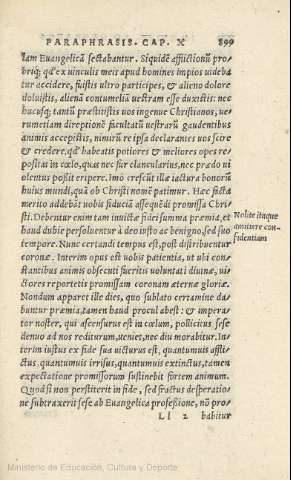 PARAPHRASIS. CAP. X 899
lam Euangelicã sectabantur. Siquidẽ afflictionũ pro-
briq; qd'ex uinculis meis apud homines impios uideba
tur accidere, fuistis ultro participes, & alieno dolore
doluistis, alienã contumeliã uestram esse duxistis: nec
hucusq; tantũ præstitistis uos ingenue Christianos, ue-
rumetiam direptionẽ facultatũ uestrarũ gaudentibus
animis accepistis, nimirũ re ipsa declarantes uos scire
& credere, qd' habeatis potiores & meliores opes re-
positas in cœlo, quas nec fur clancularius, nec prædo ui
olentus possit eripere. Imò crescũt illæ iactura bonorũ
huius mundi, quã ob Christi nomẽ patimur. Hæc facta
merito addebãt uobis fiduciã assequẽdi promissa Chri-
sti. Debentur enim tam inuictæ fidei summa præmia, et
haud dubie persoluentur à deo iusto ac benigno, sed suo
tempore. Nunc certandi tempus est, post distribuentur
coronæ. Interim opus est uobis patientia, ut ubi con-
stantibus animis obsecuti fueritis uoluntati diuinæ, ui-
ctores reportetis promissam coronam æternæ gloriæ.
Nondum apparet ille dies, quo sublato certamine da-
buntur præmia, tamen haud procul abest: & impera-
tor noster, qui ascensurus est in cœlum, pollicitus sese
denuo ad nos rediturum, ueniet, nec diu morabitur. In-
terim iustus ex fide sua uicturus est, quantumuis affli-
ctus, quantumuis irrisus, quantumuis extinctus, tamen
expectatione promissorum sustinebit forsem animum.
Quòd si non perstiterit in fide, sed fractus desperatio-
ne subtraxerit sese ab Euangelica professione, nõ pro-
Ll 2 babitur
Nolite itaque
amittere con-
fidentiam
Ministerio de Educación, Cultura y Deporte